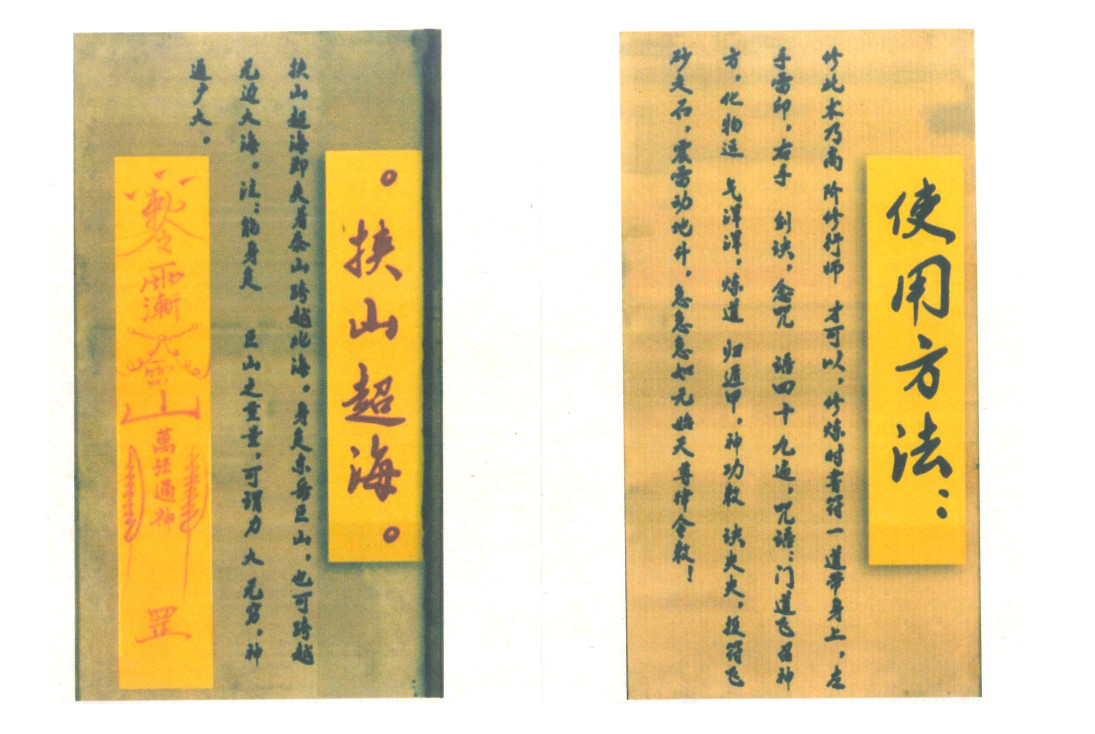 。挟山超海。
挟山超海即夹着泰山跨越北海。身负东岳巨山，也可跨越
无边大海。注：能身负 巨山之重量，可谓力大无穷，神
通广大。
山
萬法通神
罡
使用方法：
修此术乃高阶修行师 才可以，修炼时书符一道带身上，左
手雷印，右手 剑诀，念咒 语四十九遍，咒语：门道飞召神
方，化物运 气洋洋，炼道 归遁甲，神功敕 诀，投符飞
砂走石，震雷动地升，急急急如元始天尊律令敕！